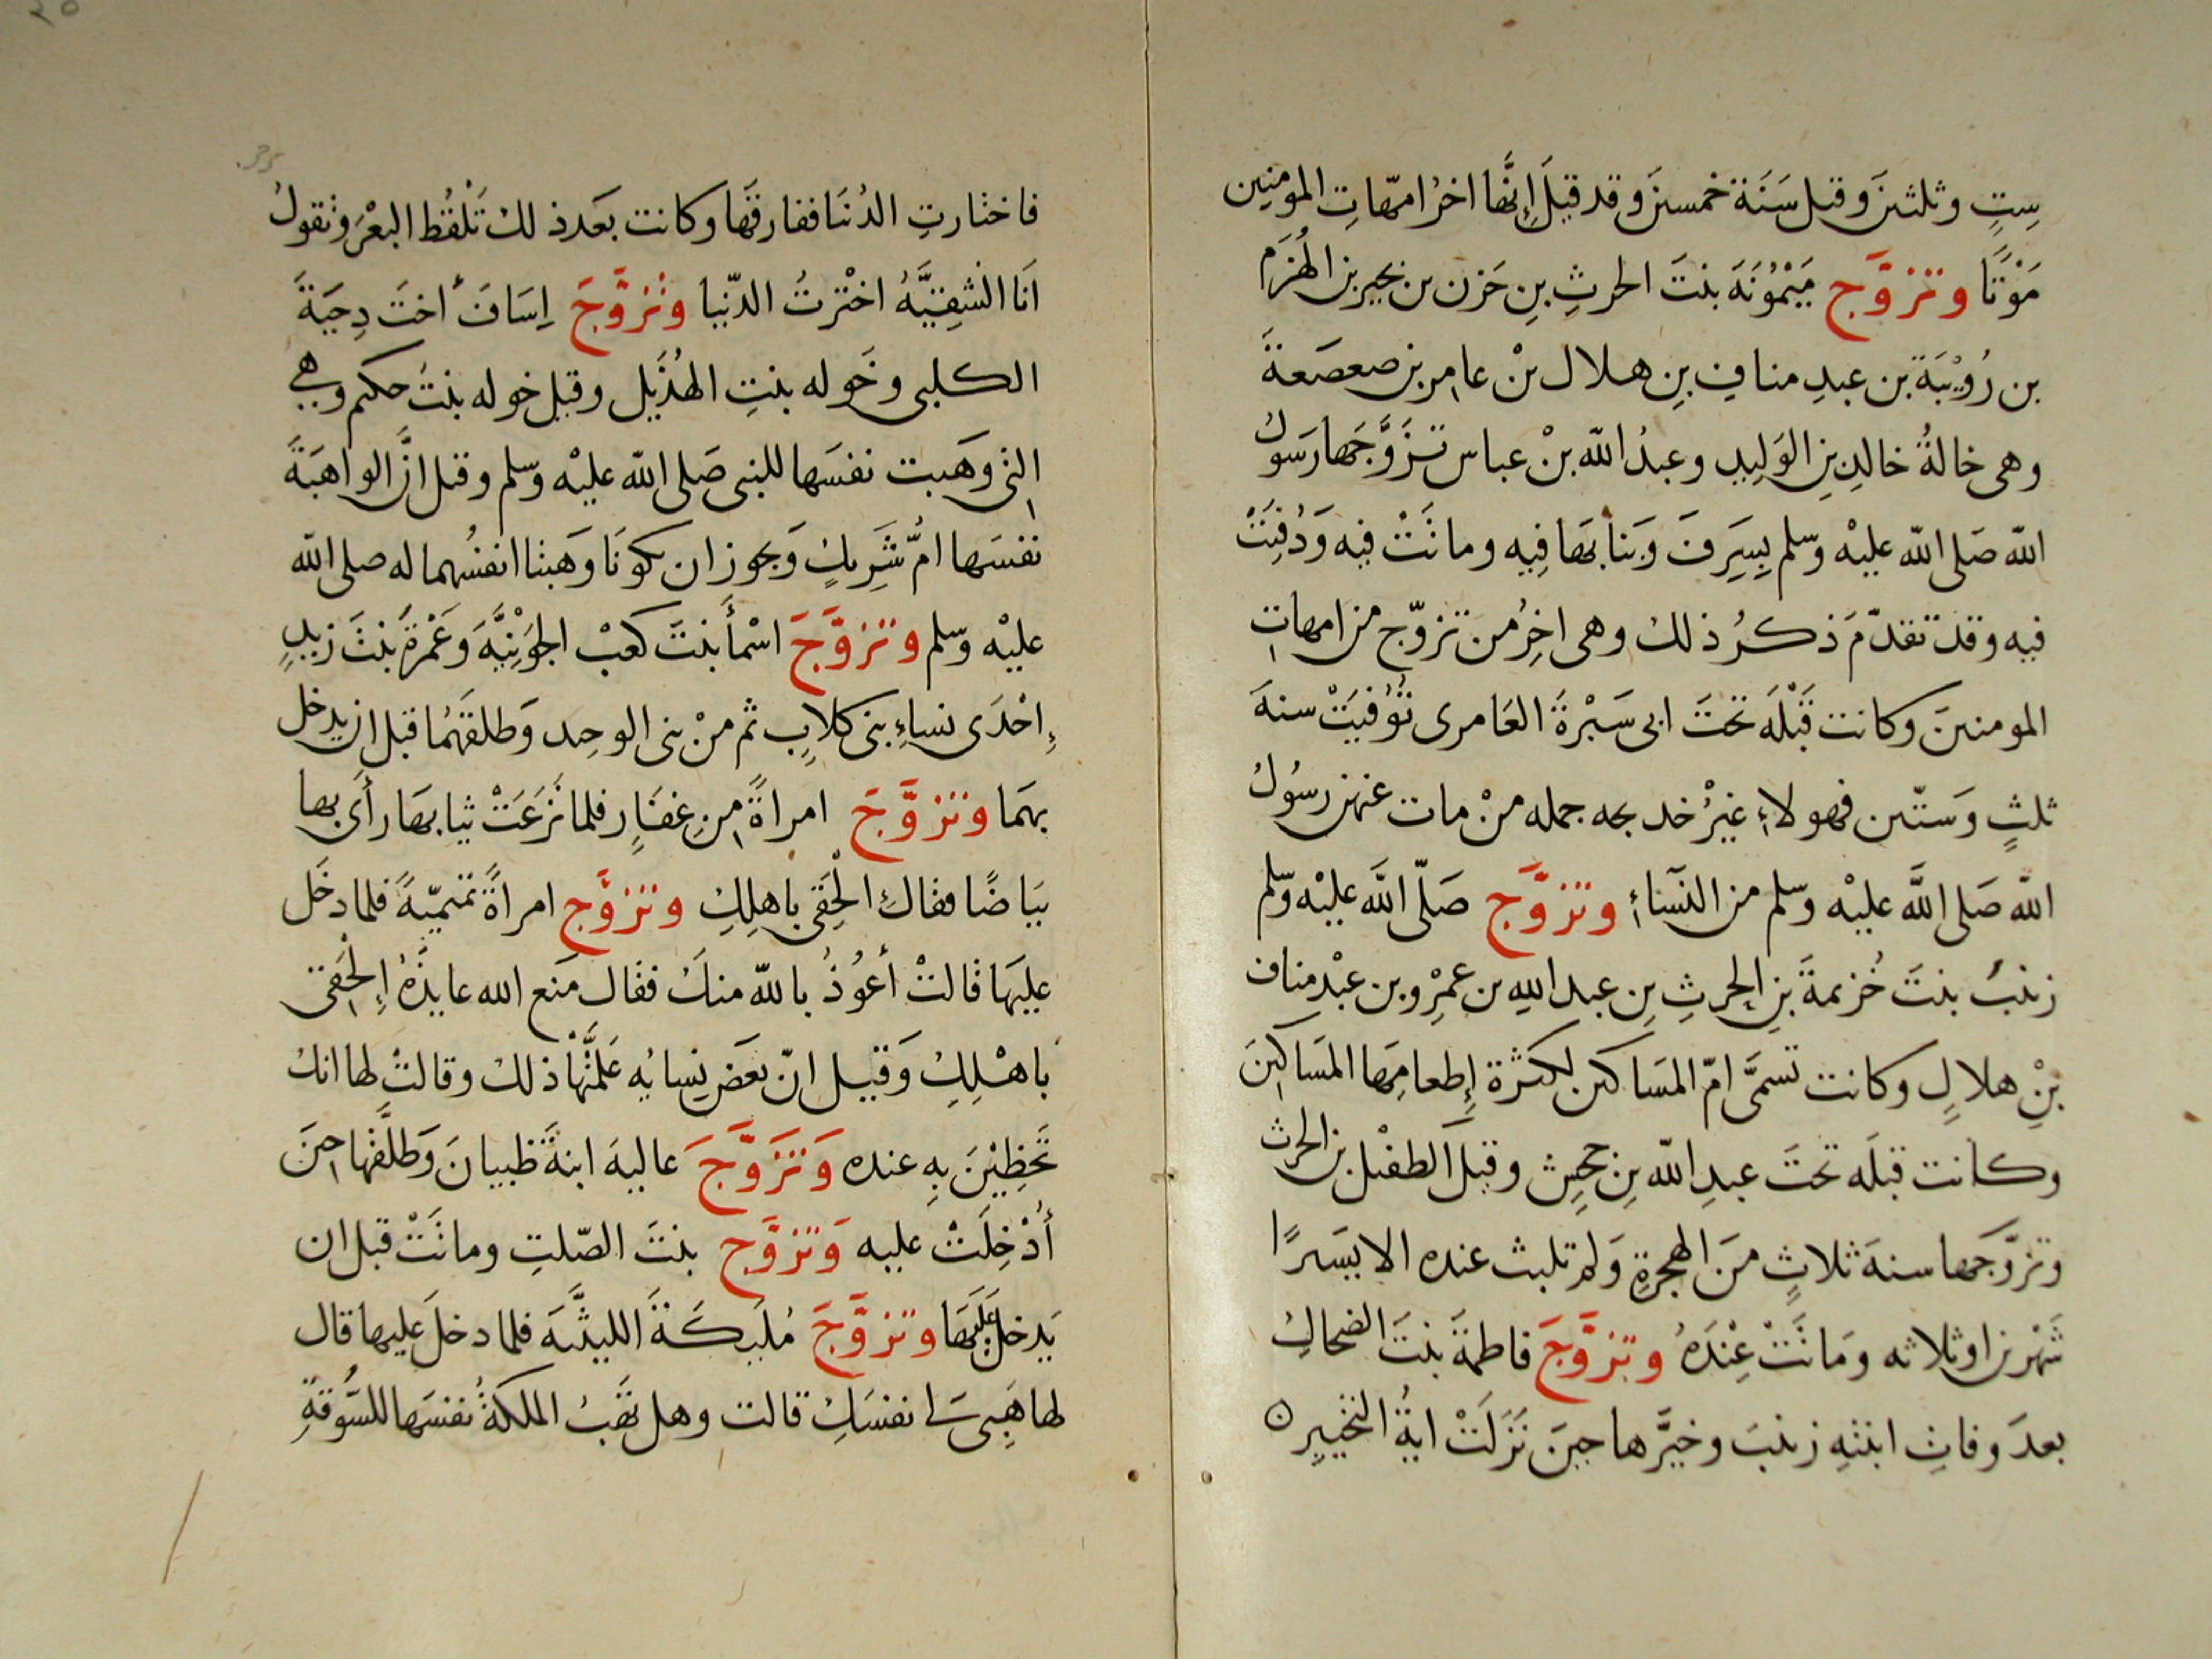 سِتٍ وثلثين وقيل سَنَة خمسين وقد قيلَ إِنَّها اخرُ امّهاتِ المومنين
مَوْتًا وتزوَّج مَيْمُونَةَ بنتَ الحرثِ بنِ حَزن بن بجير بن الهُزَم
بن رُوَيْبَة بن عبدِ منافِ بنِ هلال بْن عامر بن صعصَعةَ
وهى خالةُ خالدِ بنِ الوَلِيدِ وعبدُ الله بنْ عباس تزَوَّجَها رَسَولُ
الله صَلى الله عليْه وسلم بِسَرِفَ وَبنا بهَا فِيه وماتَتْ فيه وَدُفِنَتْ
فيه وقد تقدّمَ ذكرُ ذلك وهى اخِرُ من تزوّج من امهاتِ
المومنين وكانت قَبْلَه تحتَ ابى سَبْرةَ العَامرى تُوُفيَتْ سنةَ
ثلثٍ وَستّين فهولاءِ غيْرُ خديجه جمله منْ مات عنهن رسُولُ
الله صَلى اللَّه عليْه وسلم من النسَاءِ وتزوَّج صَلّى اللَّه عليْه وسلم
زينبُ بنتَ خُزيمةَ بنِ الحرثِ بنِ عبد اللهِ بن عمْرِو بن عبْد مناف
بنْ هلالٍ وكانت تسمَّى امّ المسَاكين لكثرة إِطعامِهَا المسَاكينَ
وكانت قبلَه تحتَ عبدِ الله بنِ جحشٍ وقيل الطفيْل بن الحرث
وتزوّجَها سنةَ ثلاثٍ منَ الهجرةِ وَلم تلبث عنده الا يسَيرًا
شَهْرين او ثلاثه ومَاتَتْ عِنْدَهُ وتزوَّجَ فاطمةَ بنتَ الضحاكِ
بعدَ وفاتِ ابنتهِ زينبَ وخيَّرها حينَ نَزَلَتْ ايةُ التخييرِ
فاختارتِ الدُنيَا ففارقَها وكانت بعَد ذلك تَلْقُط البعْرَ وتقولُ
انَا الشقِيَّهُ اخْترتُ الدّنيا وتزوَّجَ اِسَافَ اُختَ دِحيَةَ
الكلبى وخَوله بنتِ الهُذَيل وقيل خوله بنتُ حكيم وهي
التى وهَبت نفسَها للنبى صَلى الله عليْه وسلم وقيل انَّ الواهبَةَ
نفسَها امُّ شَرِيكٍ وَيجوز ان يكونَا وَهَبتا انفسُهما له صلى الله
عليْه وسلم وتزوَّجَ اسْمأَ بنتَ كعبْ الجَوْنِيَّه وعَمْرةَ بنتَ زيدٍ
إِحْدَى نساءِ بنى كلابٍ ثم منْ بنى الوحِيد وَطلقهُما قبل ان يدخل
بهمَا وتزوَّجَ امراةً من غفَارِ فلما نَزَعَتْ ثيابهَا رأَى بها
بيَاضًا فقالِ الْحَقى باهلِكِ وتزوَّج امراةً تميميّةً فلما دخَل
عليهَا قالتْ أعُوْذُ بالله منكَ فقال مَنع الله عايذَهُ إِلْحَقى
باهْلِكِ وَقيل انّ بعَض نِسايُه عَلمَّتْها ذلك وقالتْ لها انكِ
تَحْظِيْنَ بِهِ عنده وَتزَوَّجَ عاليهَ ابنةَ ظبيانَ وَطلَّقها حينَ
أُدْخِلَتْ عليه وَتزوَّج بنتَ الصّلتِ وماتَتْ قبل ان
يَدخل عَلَيهَا وتزوَّجَ مُلَيكَةَ الليثيَّهَ فلما دخلَ عليها قال
لها هَبِى لى نفسَكِ قالت وهل تَهَبُ الملكةُ نفسَها للسُّوقةِ